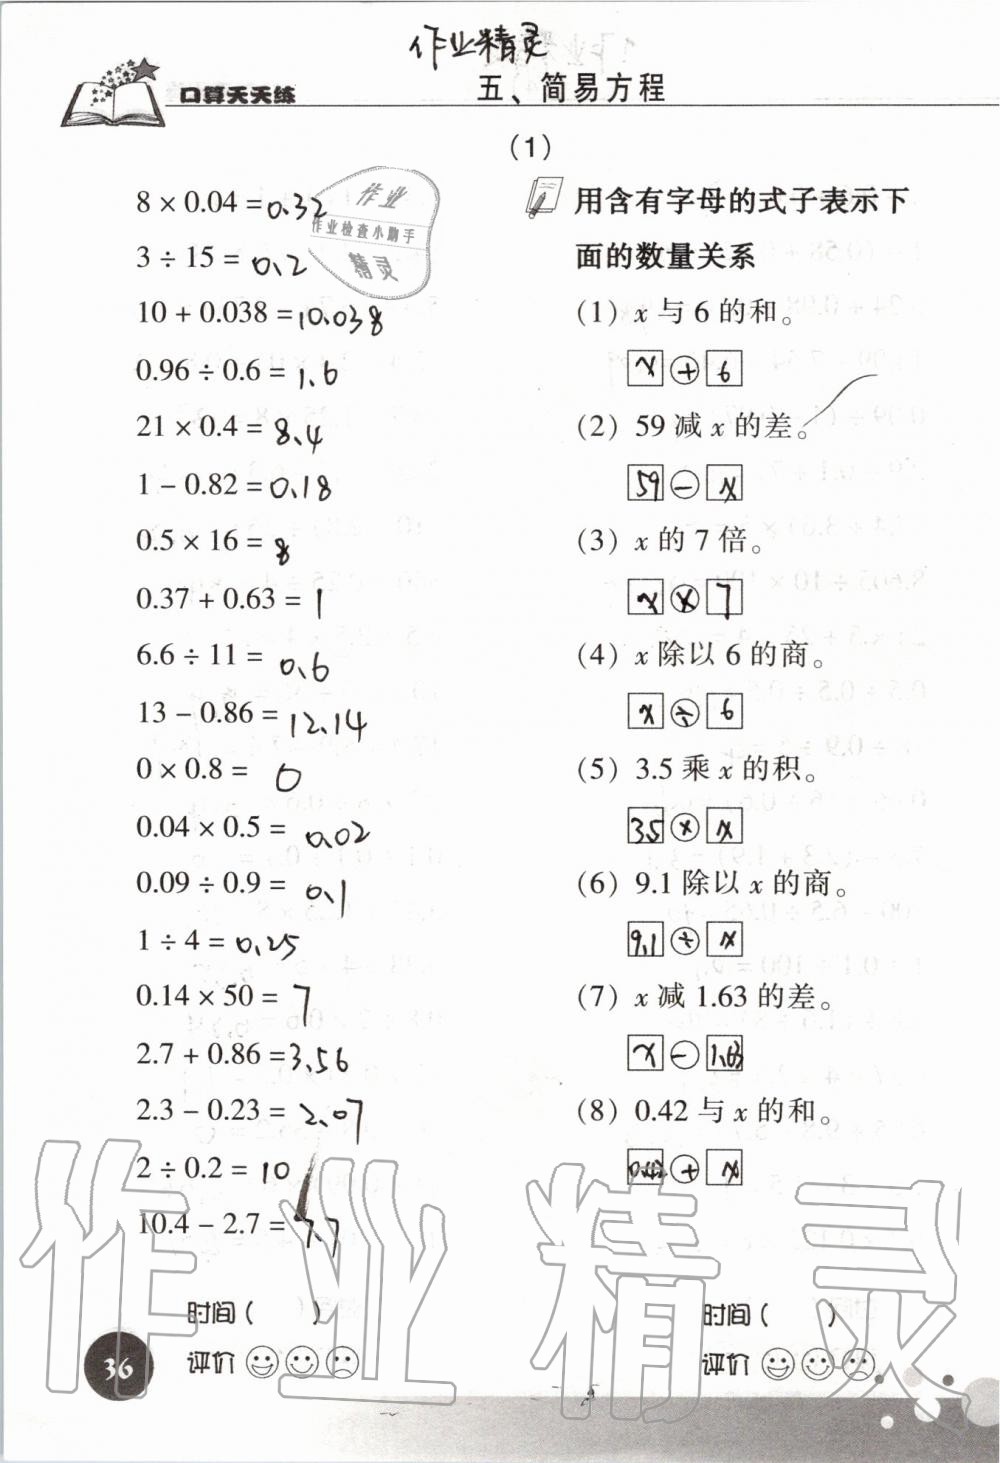 作业精灵
口算天天练
五、简易方程
(1)
8 × 0.04 = 0.32
3 ÷ 15 = 0.2
10 + 0.038 = 10.038
0.96 ÷ 0.6 = 1.6
21 × 0.4 = 8.4
1 − 0.82 = 0.18
0.5 × 16 = 8
0.37 + 0.63 = 1
6.6 ÷ 11 = 0.6
13 − 0.86 = 12.14
0 × 0.8 = 0
0.04 × 0.5 = 0.02
0.09 ÷ 0.9 = 0.1
1 ÷ 4 = 0.25
0.14 × 50 = 7
2.7 + 0.86 = 3.56
2.3 − 0.23 = 2.07
2 ÷ 0.2 = 10
10.4 − 2.7 = 7.7
时间 ( )
评价
36
作业
作业检查小助手
精灵
用含有字母的式子表示下
面的数量关系
(1) x 与 6 的和。
x + 6
(2) 59 减 x 的差。
59 − x
(3) x 的 7 倍。
x × 7
(4) x 除以 6 的商。
x ÷ 6
(5) 3.5 乘 x 的积。
3.5 × x
(6) 9.1 除以 x 的商。
9.1 ÷ x
(7) x 减 1.63 的差。
x − 1.63
(8) 0.42 与 x 的和。
0.42 + x
时间 ( )
评价
作业精灵